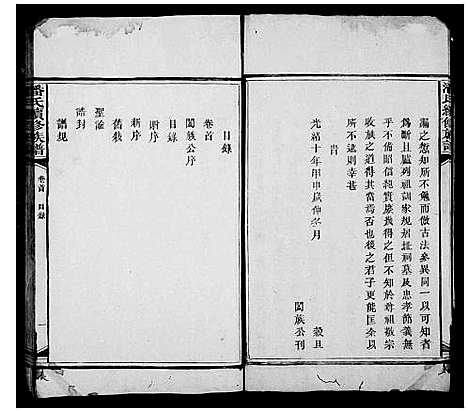 潘氏續修族譜
漏之愆知所不免而倣古法參異同一以可知者
為斷且臚列祖訓家規別塋祠墓及忠孝節義無
乎不備昭信紀實庶幾得之但不知於尊祖敬宗
收族之道得其當焉否也後之君子更能匡余以
所不逮則幸甚
旹
光緒十年甲申歲仲冬月
穀旦
闔族公刊
目錄
卷首
闔族公序
目錄
贈序
新序
舊敘
聖諭
誥封
譜規
潘氏續修族譜
卷首
目錄
一